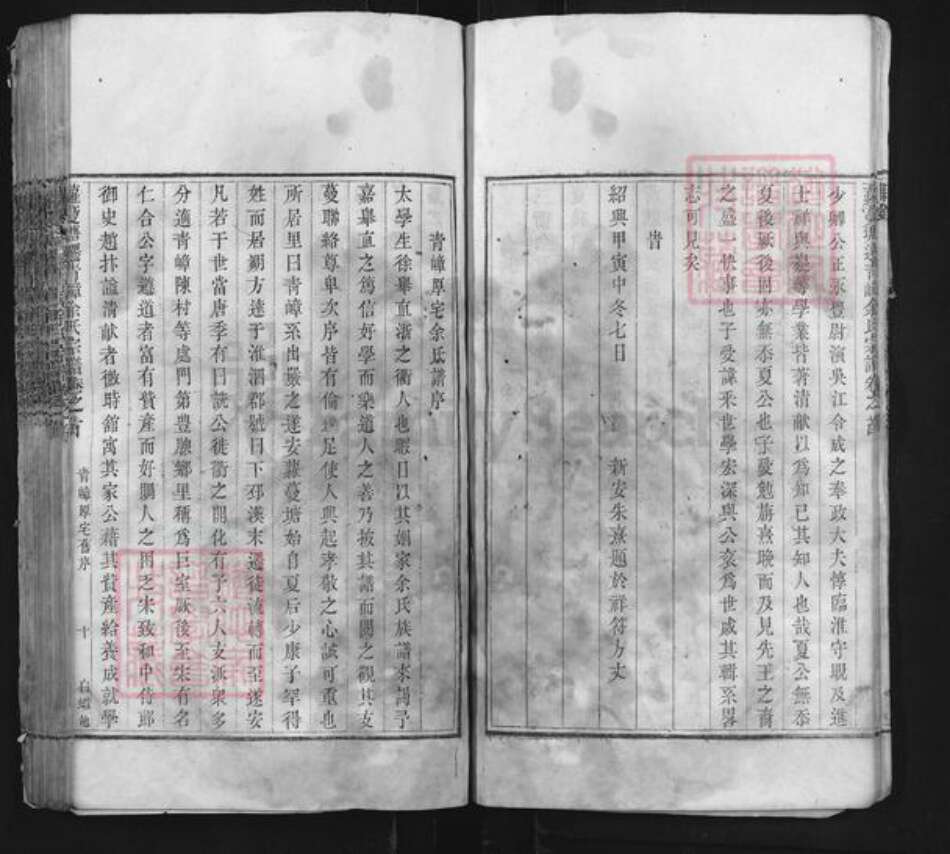 少卿公正永豐尉演吳江令威之奉政大夫惇臨淮守覬及進
士祥與憲等學業皆著清獻以爲知己其知人也哉夏公無忝
夏後厥後固亦無忝夏公也予憂勉旃熹晚而及見先王之裔
之盛一快事也予愛諱釆世學宏深與公袞爲世戚其輯系畧
志可見矣
旹
紹興甲寅中冬七日 新安朱熹題於祥符方丈
青嶂厚宅余氏譜序
太學生徐舉直浙之衢人也暇日以其姻家余氏族譜來謁予
嘉舉直之篤信好學而樂道人之善乃披其譜而閱之觀其支
蔓聯絡尊卑次序皆有倫足使人興起孝敬之心誠可重也
所居里曰青嶂系出嚴之遂安蕪蔓塘始自夏后少康子罕得
姓而居朔方達于淮泗郡號曰下邳漢末遷徙流轉而至遂安
凡若干世當唐季有曰讜公徙衢之開化有子六人支派衆多
分適青嶂陳村等處門第豊贍鄉里稱爲巨室厥後至宋有名
仁合公字道道者富有貲產而好賙人之困乏宋致和中侍郎
御史趙抃謚清獻者微時舘寓其家公藉其貲產給養成就學
青嶂厚宅舊序 十